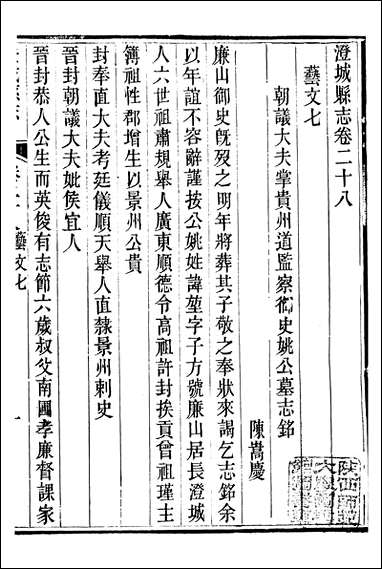 澄城縣志卷二十八
藝文七
朝議大夫掌貴州道監察御史姚公墓志銘
陳嵩慶
廉山御史旣歿之明年將葬其子敬之奉狀來謁乞志銘余
以年誼不容辭謹按公姚姓諱堃字子方號廉山居長澄城
人六世祖肅規舉人廣東順德令高祖許封挨貢曾祖瑾主
簿祖性郡增生以景州公貴
封奉直大夫考廷儀順天舉人直隸景州刺史
晉封朝議大夫妣侯宜人
晉封恭人公生而英俊有志節六歲叔父南國孝廉督課家
藝文七
一